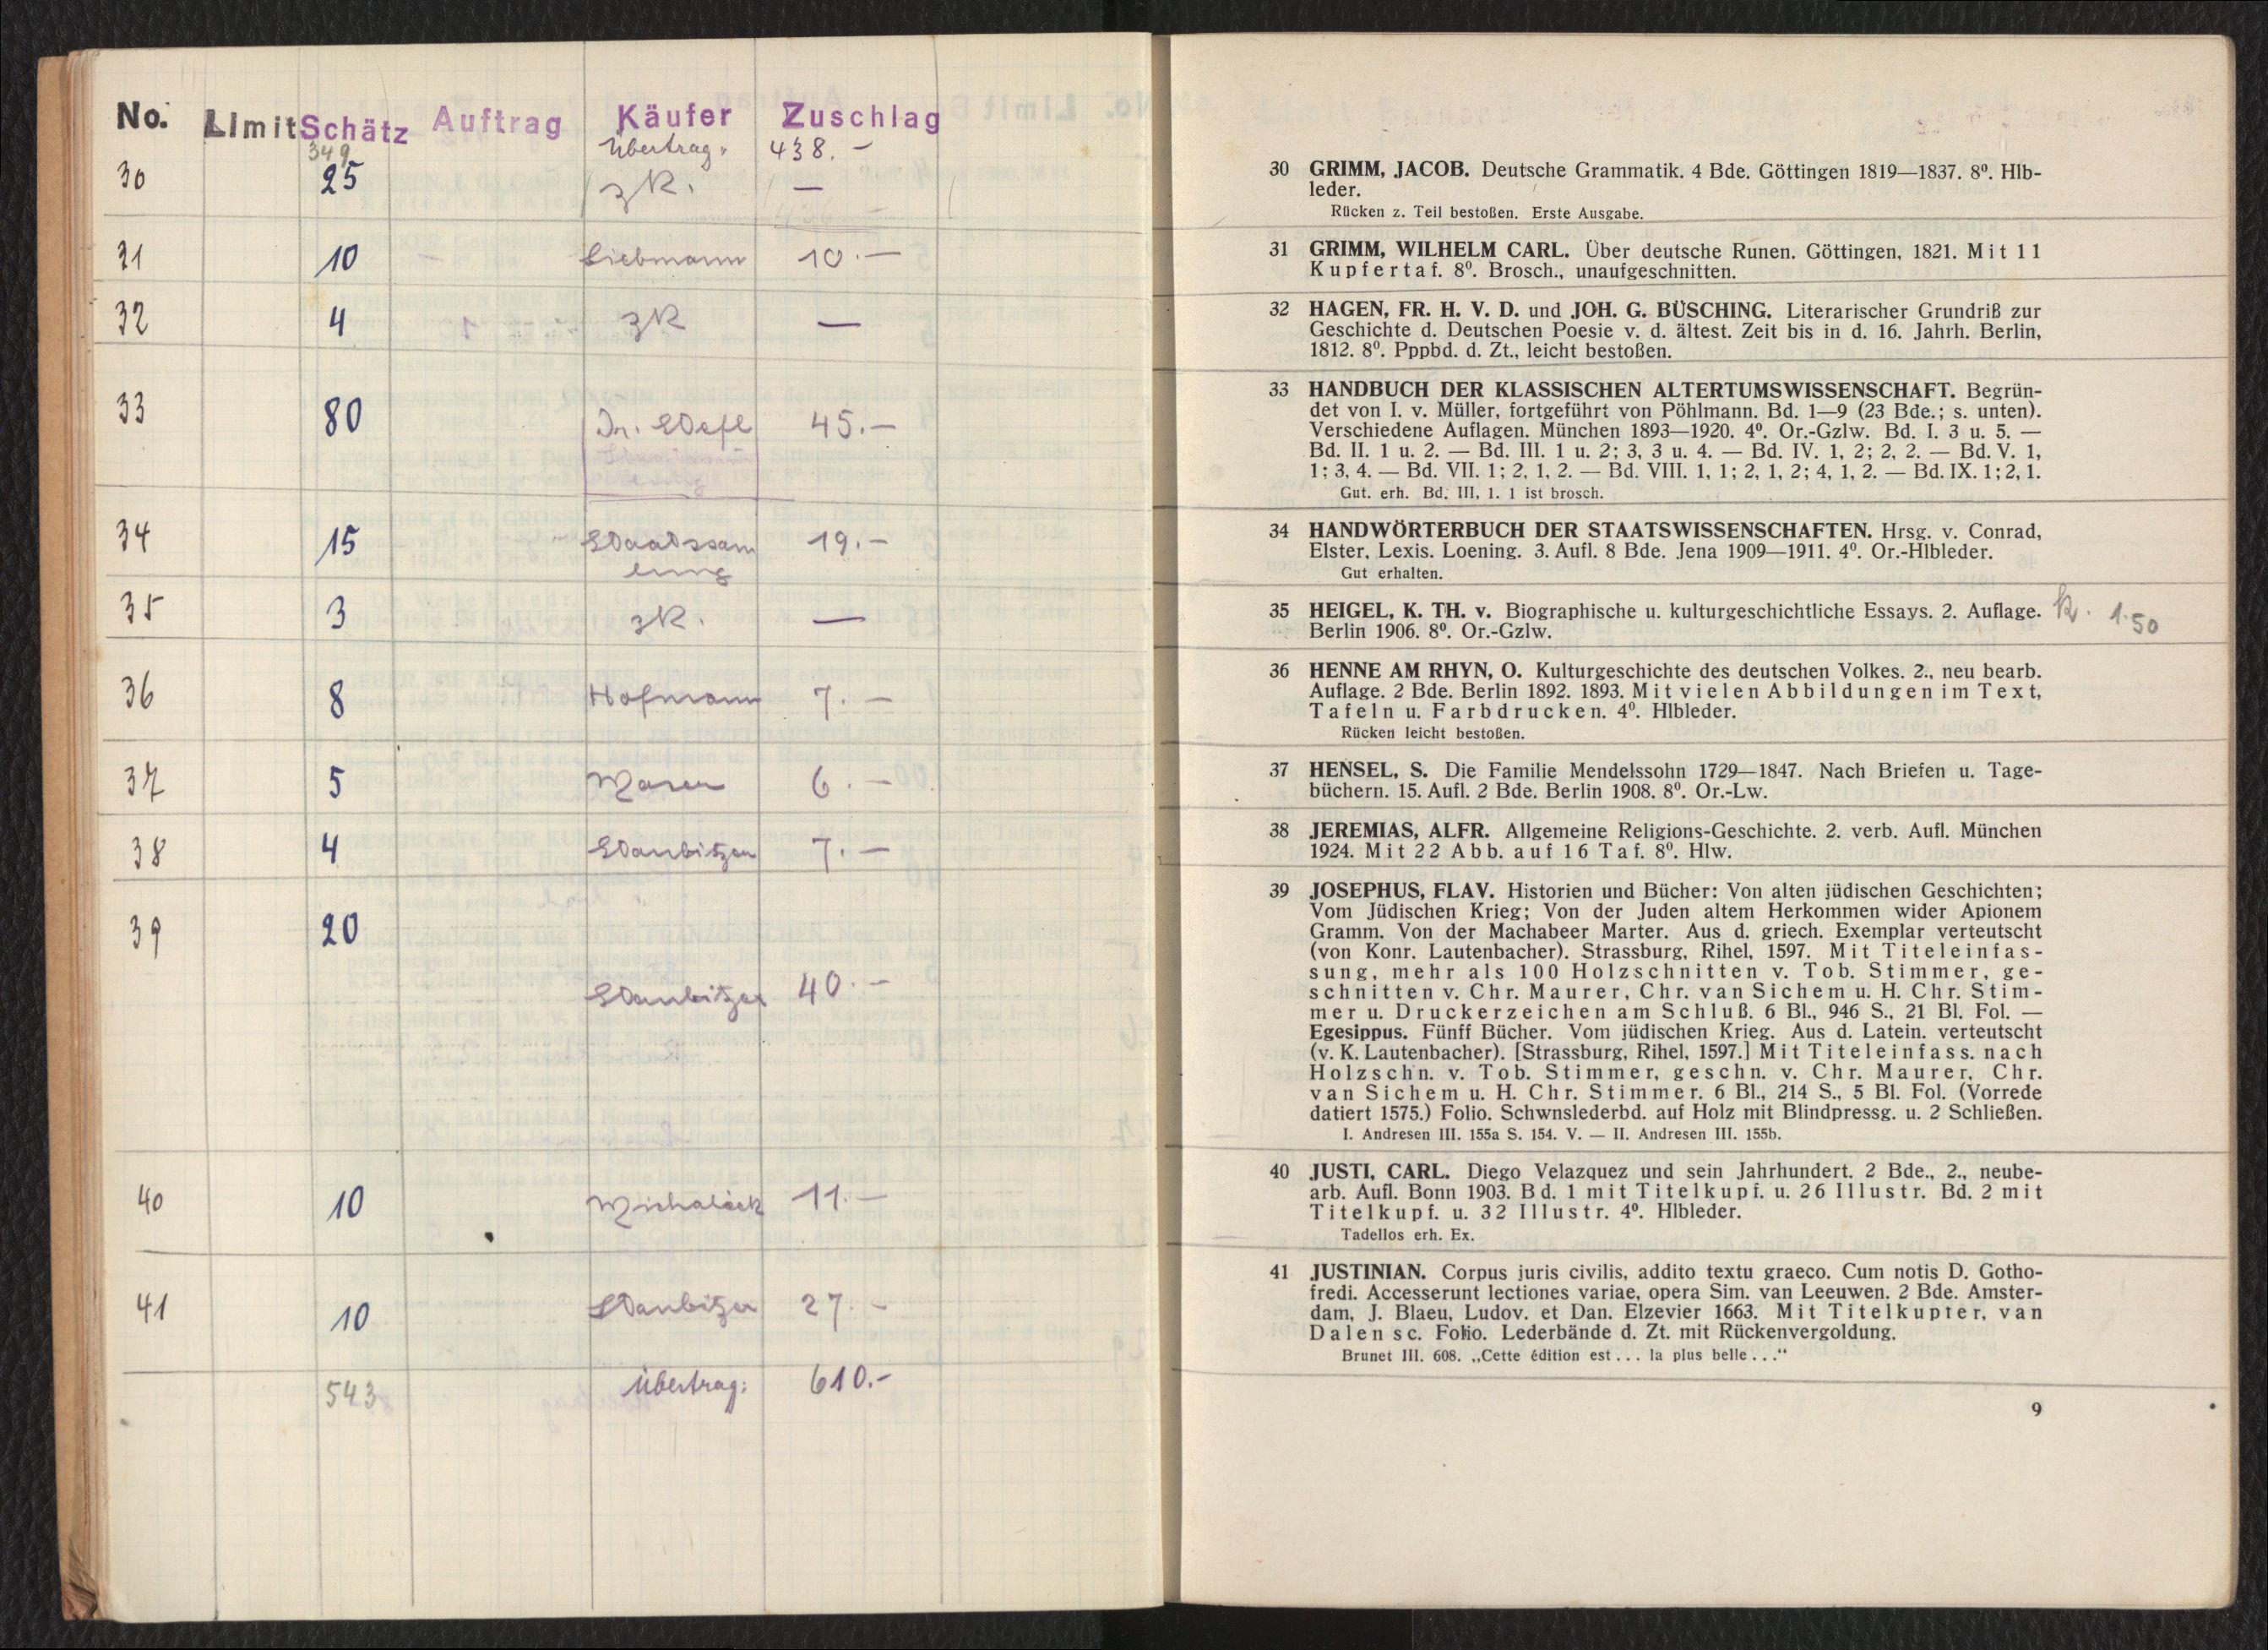 No. Limit Schätz Auftrag Käufer Zuschlag
349 Übertrag: 438.—
30 25 zk. —
31 10 Liebmann 10.—
32 4 zk —
33 80 Dr. 45.—
34 15 Staatssam 19.—
lung
35 3 zk. —
36 8 Hofmann 7.—
37 5 6.—
38 4 Staubitzer 7.—
39 20
Staubitzer 40.—
40 10 11.—
41 10 Staubitzer 27.—
543 Übertrag: 610.-
30 GRIMM, JACOB. Deutsche Grammatik. 4 Bde. Göttingen 1819—1837. 8⁰. Hlb-
leder.
Rücken z. Teil bestoßen. Erste Ausgabe.
31 GRIMM, WILHELM CARL. Über deutsche Runen. Göttingen, 1821. Mit 11
Kupfertaf. 8⁰. Brosch., unaufgeschnitten.
32 HAGEN, FR. H. V. D. und JOH. G. BÜSCHING. Literarischer Grundriß zur
Geschichte d. Deutschen Poesie v. d. ältest. Zeit bis in d. 16. Jahrh. Berlin,
1812. 8⁰. Pppbd. d. Zt., leicht bestoßen.
33 HANDBUCH DER KLASSISCHEN ALTERTUMSWISSENSCHAFT. Begrün-
det von I. v. Müller, fortgeführt von Pöhlmann. Bd. 1—9 (23 Bde.; s. unten).
Verschiedene Auflagen. München 1893—1920. 4⁰. Or.-Gzlw. Bd. I. 3 u. 5. —
Bd. II. 1 u. 2. — Bd. III. 1 u. 2; 3, 3 u. 4. — Bd. IV. 1, 2; 2, 2. — Bd. V. 1,
1; 3, 4. — Bd. VII. 1; 2, 1, 2. — Bd. VIII. 1, 1; 2, 1, 2; 4, 1, 2. — Bd. IX. 1; 2, 1.
Gut. erh. Bd. III, 1. 1 ist brosch.
34 HANDWÖRTERBUCH DER STAATSWISSENSCHAFTEN. Hrsg. v. Conrad,
Elster, Lexis. Loening. 3. Aufl. 8 Bde. Jena 1909—1911. 4⁰. Or.-Hlbleder.
Gut erhalten.
35 HEIGEL, K. TH. v. Biographische u. kulturgeschichtliche Essays. 2. Auflage. 1.50
Berlin 1906. 8⁰. Or.-Gzlw.
36 HENNE AM RHYN, O. Kulturgeschichte des deutschen Volkes. 2., neu bearb.
Auflage. 2 Bde. Berlin 1892. 1893. Mit vielen Abbildungen im Text,
Tafeln u. Farbdrucken. 4⁰. Hlbleder.
Rücken leicht bestoßen.
37 HENSEL, S. Die Familie Mendelssohn 1729—1847. Nach Briefen u. Tage-
büchern. 15. Aufl. 2 Bde. Berlin 1908. 8⁰. Or.-Lw.
38 JEREMIAS, ALFR. Allgemeine Religions-Geschichte. 2. verb. Aufl. München
1924. Mit 22 Abb. auf 16 Taf. 8⁰. Hlw.
39 JOSEPHUS, FLAV. Historien und Bücher: Von alten jüdischen Geschichten;
Vom Jüdischen Krieg; Von der Juden altem Herkommen wider Apionem
Gramm. Von der Machabeer Marter. Aus d. griech. Exemplar verteutscht
(von Konr. Lautenbacher). Strassburg, Rihel, 1597. Mit Titeleinfas-
sung, mehr als 100 Holzschnitten v. Tob. Stimmer, ge-
schnitten v. Chr. Maurer, Chr. van Sichem u. H. Chr. Stim-
mer u. Druckerzeichen am Schluß. 6 Bl., 946 S., 21 Bl. Fol. —
Egesippus. Fünff Bücher. Vom jüdischen Krieg. Aus d. Latein. verteutscht
(v. K. Lautenbacher). [Strassburg, Rihel, 1597.] Mit Titeleinfass. nach
Holzschn. v. Tob. Stimmer, geschn. v. Chr. Maurer, Chr.
van Sichem u. H. Chr. Stimmer. 6 Bl., 214 S., 5 Bl. Fol. (Vorrede
datiert 1575.) Folio. Schwnslederbd. auf Holz mit Blindpressg. u. 2 Schließen.
I. Andresen III. 155a S. 154. V. — II. Andresen III. 155b.
40 JUSTI, CARL. Diego Velazquez und sein Jahrhundert. 2 Bde., 2., neube-
arb. Aufl. Bonn 1903. Bd. 1 mit Titelkupf. u. 26 Illustr. Bd. 2 mit
Titelkupf. u. 32 Illustr. 4⁰. Hlbleder.
Tadellos erh. Ex.
41 JUSTINIAN. Corpus juris civilis, addito textu graeco. Cum notis D. Gotho-
fredi. Accesserunt lectiones variae, opera Sim. van Leeuwen. 2 Bde. Amster-
dam, J. Blaeu, Ludov. et Dan. Elzevier 1663. Mit Titelkupfer, van
Dalen sc. Folio. Lederbände d. Zt. mit Rückenvergoldung.
Brunet III. 608. „Cette édition est... la plus belle..."
9